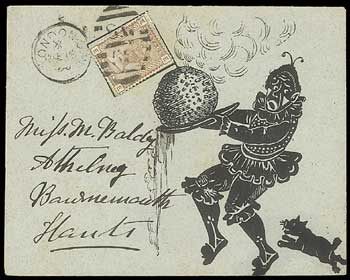 LONDON
Miss. M. Baldy
Athelney
Bournemouth
Hants